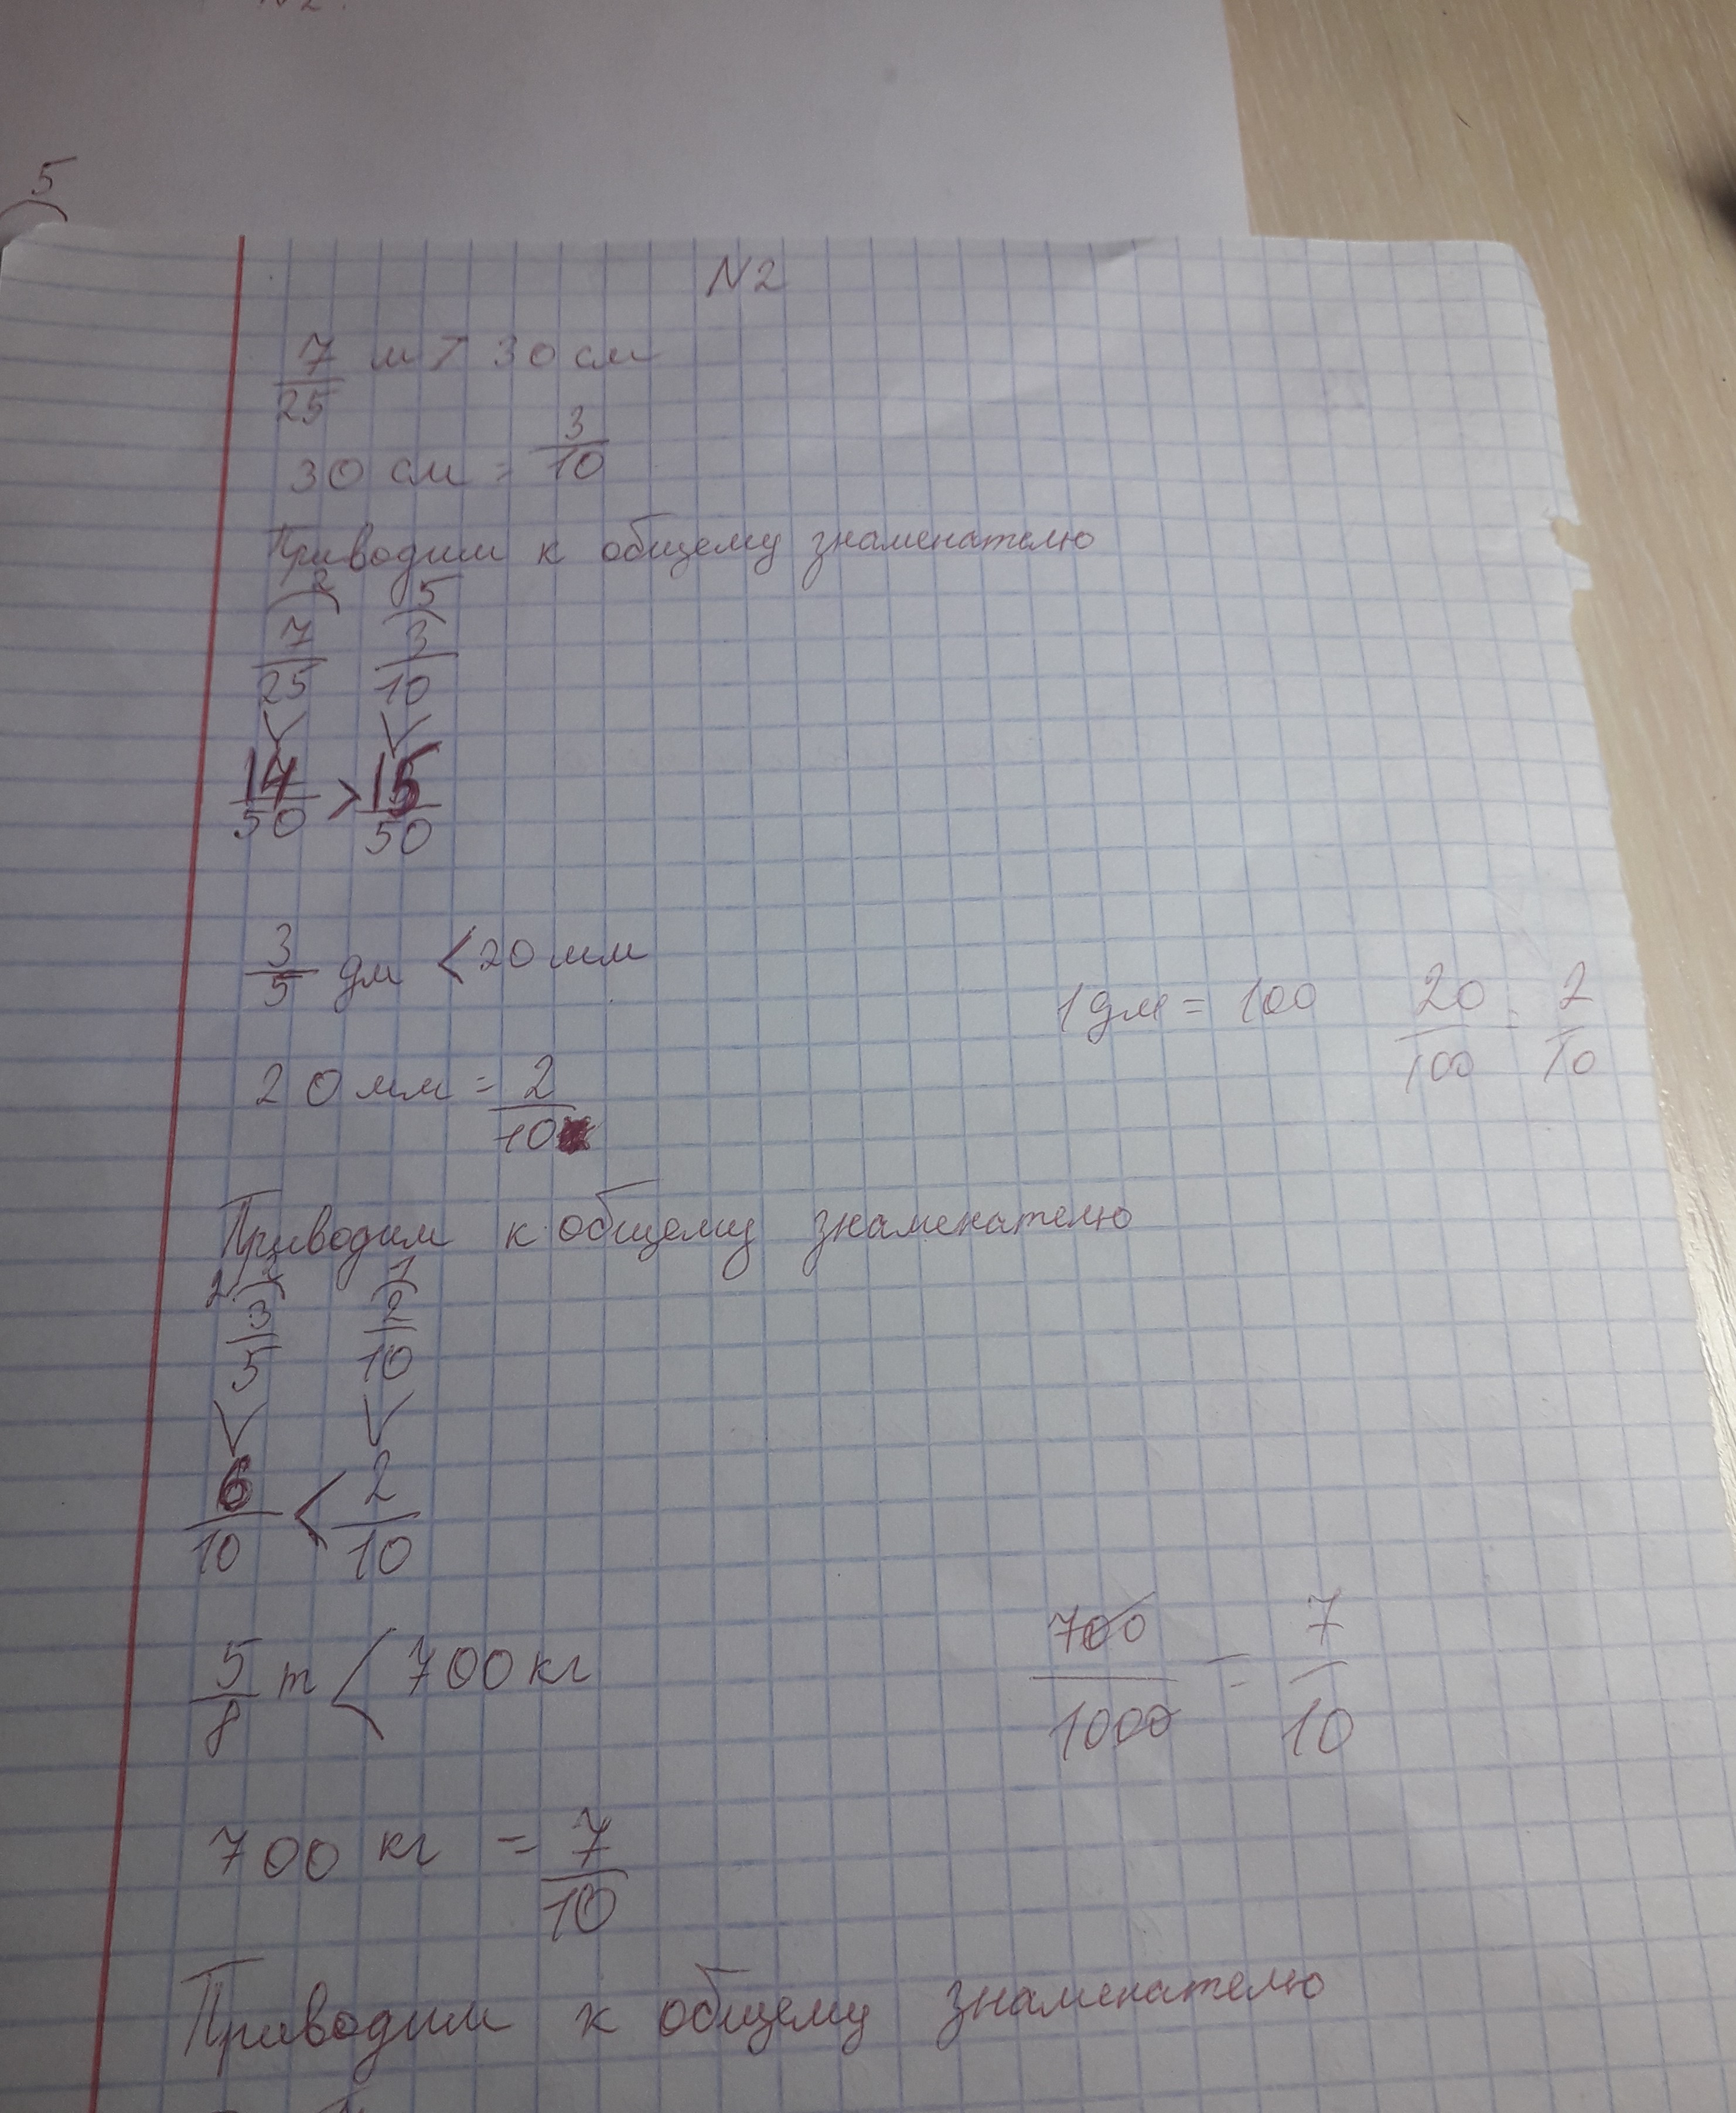 5
N2
7/25 м > 30 см
30 см = 3/10
Приводим к общему знаменателю
2 5
7/25 3/10
14/50 > 15/50
3/5 дм < 20 мм
1 дм = 100 20/100 = 2/10
20 мм = 2/10
Приводим к общему знаменателю
2 1
3/5 2/10
6/10 < 2/10
5/8 т < 700 кг
700/1000 = 7/10
700 кг = 7/10
Приводим к общему знаменателю